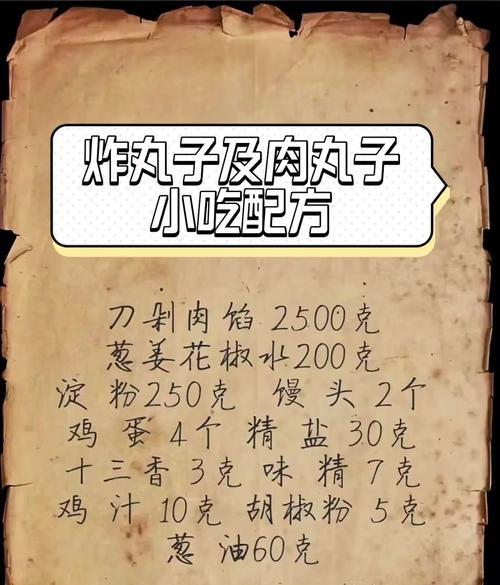 炸丸子及肉丸子
小吃配方
刀剁肉馅 2500克
葱姜花椒水200克
淀粉250克 馒头 2个
鸡蛋 4个 精盐 30克
十三香 3克 味精 7克
鸡汁 10克 胡椒粉 5克
葱油60克